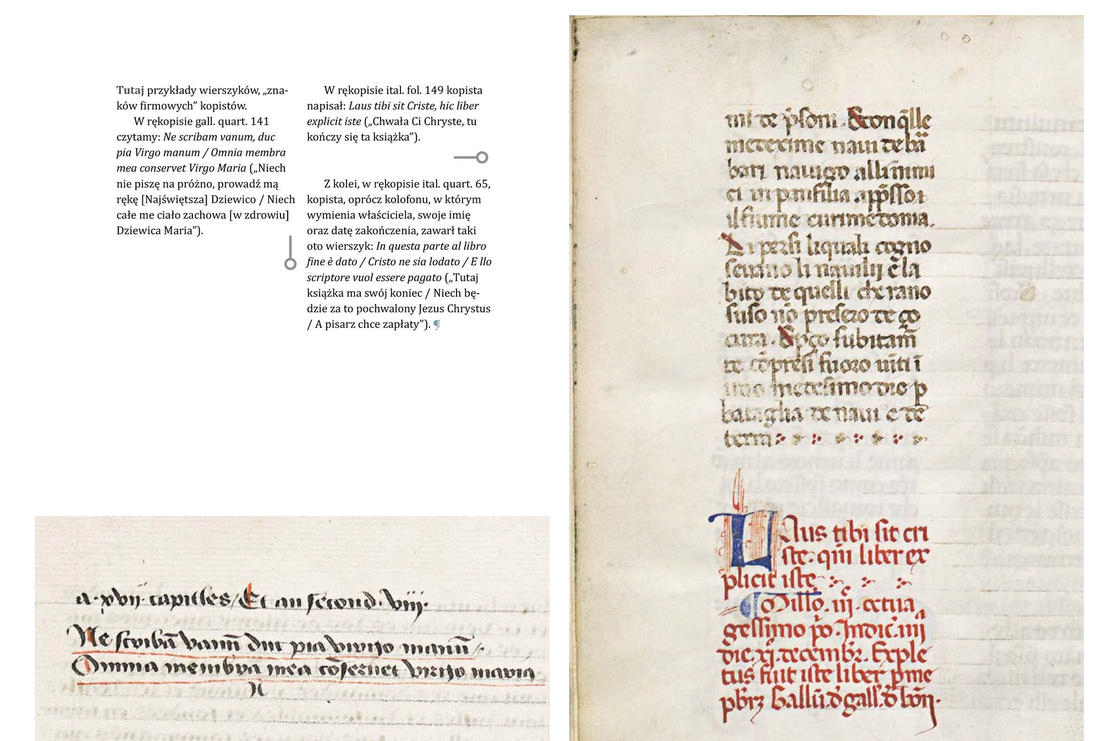 Tutaj przykłady wierszyków, „zna-
ków firmowych” kopistów.
W rękopisie gall. quart. 141
czytamy: Ne scribam vanum, duc
pia Virgo manum / Omnia membra
mea conservet Virgo Maria („Niech
nie piszę na próżno, prowadź mą
rękę [Najświętsza] Dziewico / Niech
całe me ciało zachowa [w zdrowiu]
Dziewica Maria”).
W rękopisie ital. fol. 149 kopista
napisał: Laus tibi sit Criste, hic liber
explicit iste („Chwała Ci Chryste, tu
kończy się ta książka”).
Z kolei, w rękopisie ital. quart. 65,
kopista, oprócz kolofonu, w którym
wymienia właściciela, swoje imię
oraz datę zakończenia, zawarł taki
oto wierszyk: In questa parte al libro
fine è dato / Cristo ne sia lodato / E llo
scriptore vuol essere pagato („Tutaj
książka ma swój koniec / Niech bę-
dzie za to pochwalony Jezus Chrystus
/ A pisarz chce zapłaty”). ¶
a. xvii. capitles. Et an second. viij.
Ne scribā vanū duc pia virgo manū
Omnia membra mea cōservet virgo maria
mi te
metexime naui de bā
bari nauigo alli
ci in panfilia
il fiume curimetonta.
Li persi li quali cogno
li nauilij ē la
bito de quelli che rano
suso nō presero te
cura. subitam̄
te cōpresi fuoro uīti ī
uno metesimo die p
bataglia de naui e de
terra
Laus tibi sit cri
ste. qm̄ liber ex
plicit iste
Millo. iij. cetua
gessimo po. Indic. iiij
die. xi. decembr. Exple
tus fuit iste liber p me
pbrz Gallū. d gall. d bon.